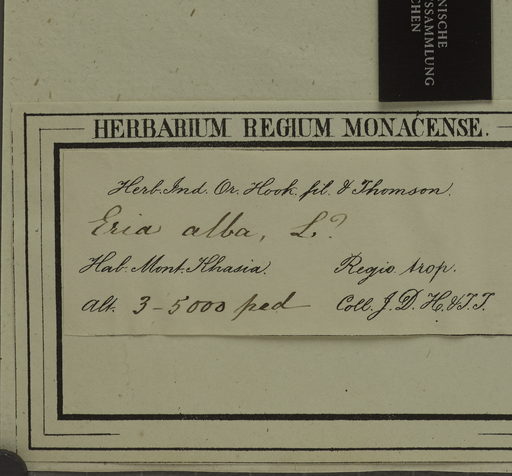 NISCHE
SSAMMLUNG
CHEN
HERBARIUM REGIUM MONACENSE.
Herb. Ind. Or. Hook. fil. & Thomson.
Eria alba, L?
Hab. Mont. Khasia. Regio trop.
Alt. 3-5000 ped Coll. J. D. H. & T. T.